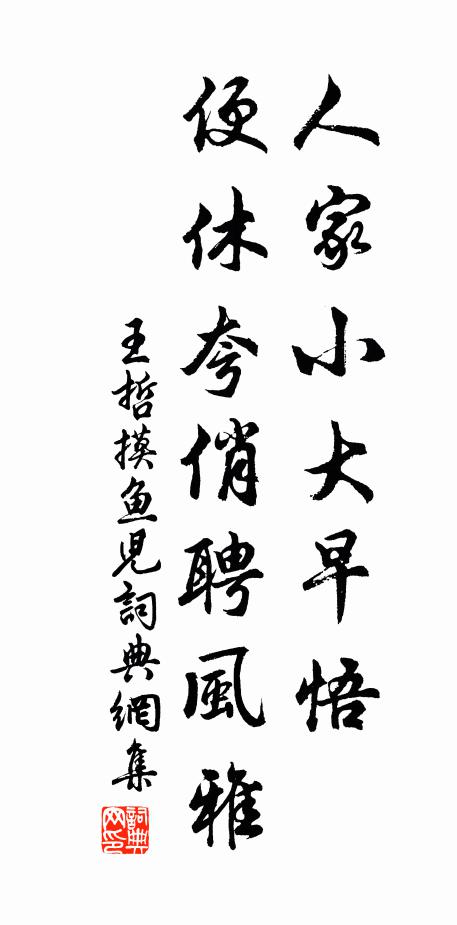 人家小大早悟
便休夸俏聘風雅
王哲摸鱼児詞典網集
詞典网印